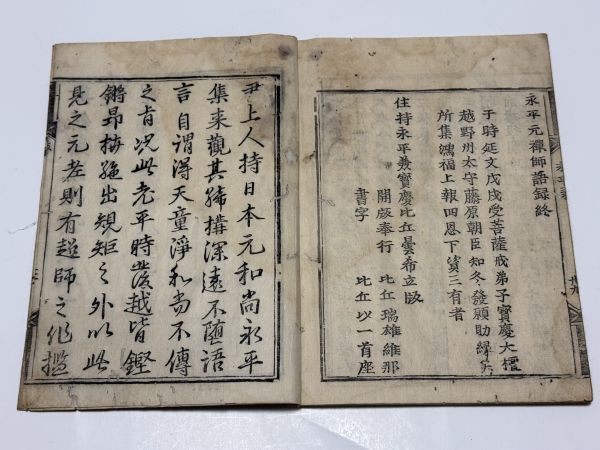 永平元禅師語録終
于時延文戊戌受菩薩戒弟子寶慶大檀
越野州太守藤原朝臣知冬發願助縁
所集濡福上報四恩下資三有者
住持永平兼寶慶比丘曇希立版
開版奉行 比丘瑞雄維那
書字 比丘以一首座
上人持日本元和尚永平
集来觀其締搆深遠不墮語
言自謂得天童淨和尚不傳
之肯况此老平時發越皆鏗
鏘昂出規矩之外以此
見之元老則有超師之作